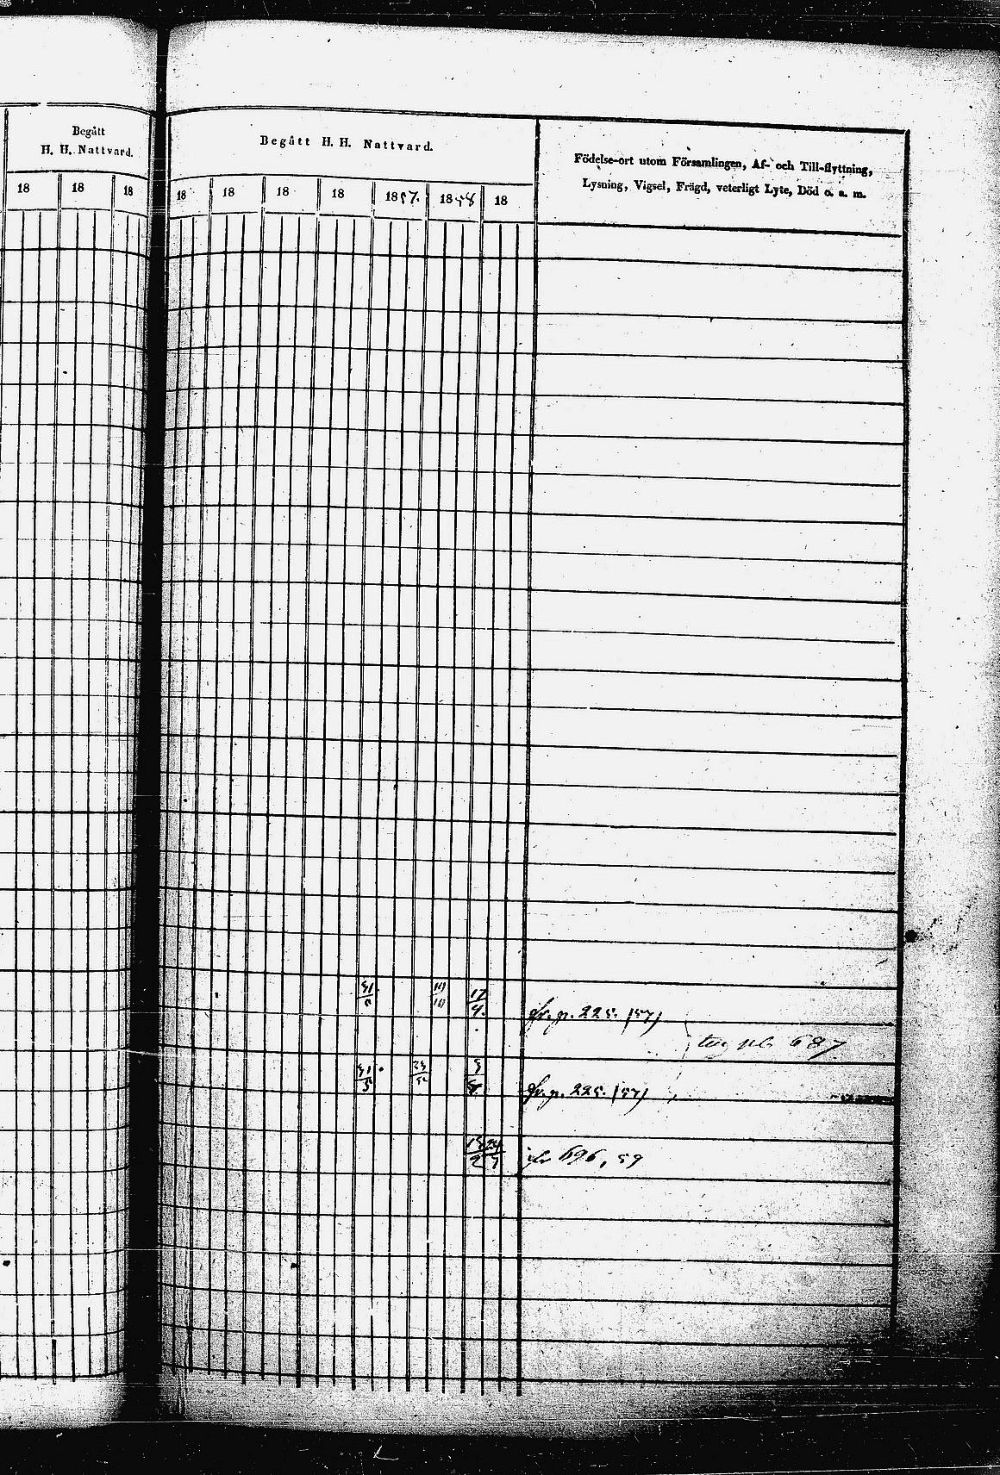 Begått
H. H. Nattvard.
18 18 18
Begått H. H. Nattvard.
18 18 18 18 1857. 1858 18
Födelse-ort utom Församlingen, Af- och Till-flyttning,
Lysning, Vigsel, Frägd, veterligt Lyte, Död o. s. m.
31 17/4. fr. p. 225. (57)
687
31/5 fr. p. 225. (57)
696, 59